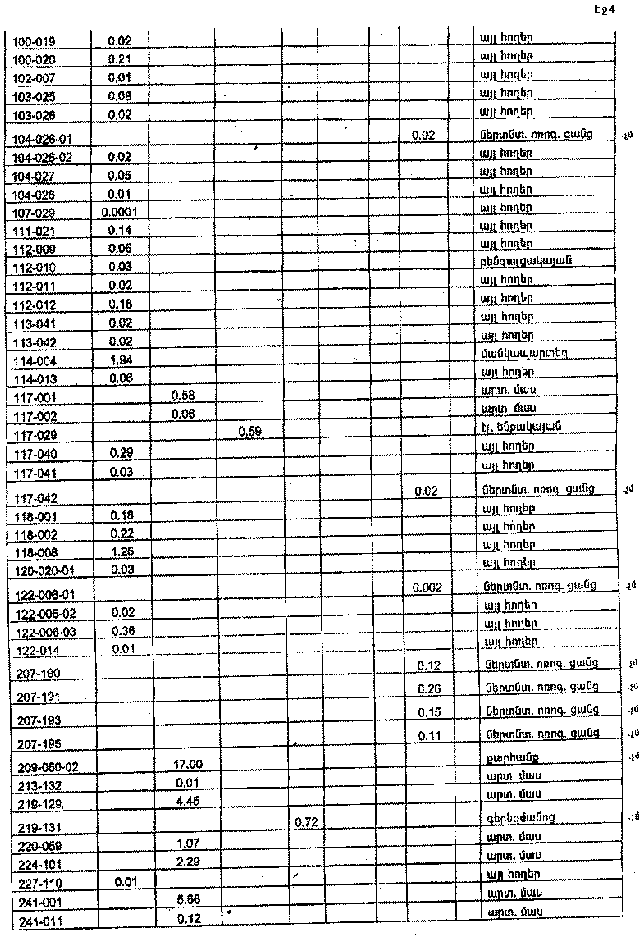 Էջ4
100-019 0.02 այլ հողեր
100-020 0.21 այլ հողեր
102-007 0.01 այլ հողեր
103-025 0.08 այլ հողեր
103-026 0.02 այլ հողեր
104-026-01 0.02 ներտնտ. ոռոգ. ցանց
104-026-02 0.02 այլ հողեր
104-027 0.05 այլ հողեր
104-028 0.01 այլ հողեր
107-029 0.0001 այլ հողեր
111-021 0.14 այլ հողեր
112-009 0.06 այլ հողեր
112-010 0.03
112-011 0.02 այլ հողեր
112-012 0.18 այլ հողեր
113-041 0.02 այլ հողեր
113-042 0.02 այլ հողեր
114-004 1.94 մանկապարտեզ
114-013 0.06 այլ հողեր
117-001 0.58 արտ. մաս
117-002 0.06 արտ. մաս
117-029 0.59 էլ. ենթակայան
117-040 0.29 այլ հողեր
117-041 0.03 այլ հողեր
117-042 0.02 ներտնտ. ոռոգ. ցանց
118-001 0.18 այլ հողեր
118-002 0.22 այլ հողեր
118-008 1.25 այլ հողեր
120-020-01 0.03 այլ հողեր
122-006-01 0.002 ներտնտ. ոռոգ. ցանց
122-006-02 0.02 այլ հողեր
122-006-03 0.36 այլ հողեր
122-014 0.01 այլ հողեր
207-190 0.12 ներտնտ. ոռոգ. ցանց
207-191 0.26 ներտնտ. ոռոգ. ցանց
207-193 0.15 ներտնտ. ոռոգ. ցանց
207-195 0.11 ներտնտ. ոռոգ. ցանց
209-060-02 17.00 քարհանք
213-132 0.01 արտ. մաս
219-129 4.45 արտ. մաս
219-131 0.72 գերեզմանոց
220-059 1.07 արտ. մաս
224-101 2.29 արտ. մաս
227-110 0.01 այլ հողեր
241-001 արտ. մաս
241-011 0.12 արտ. մաս